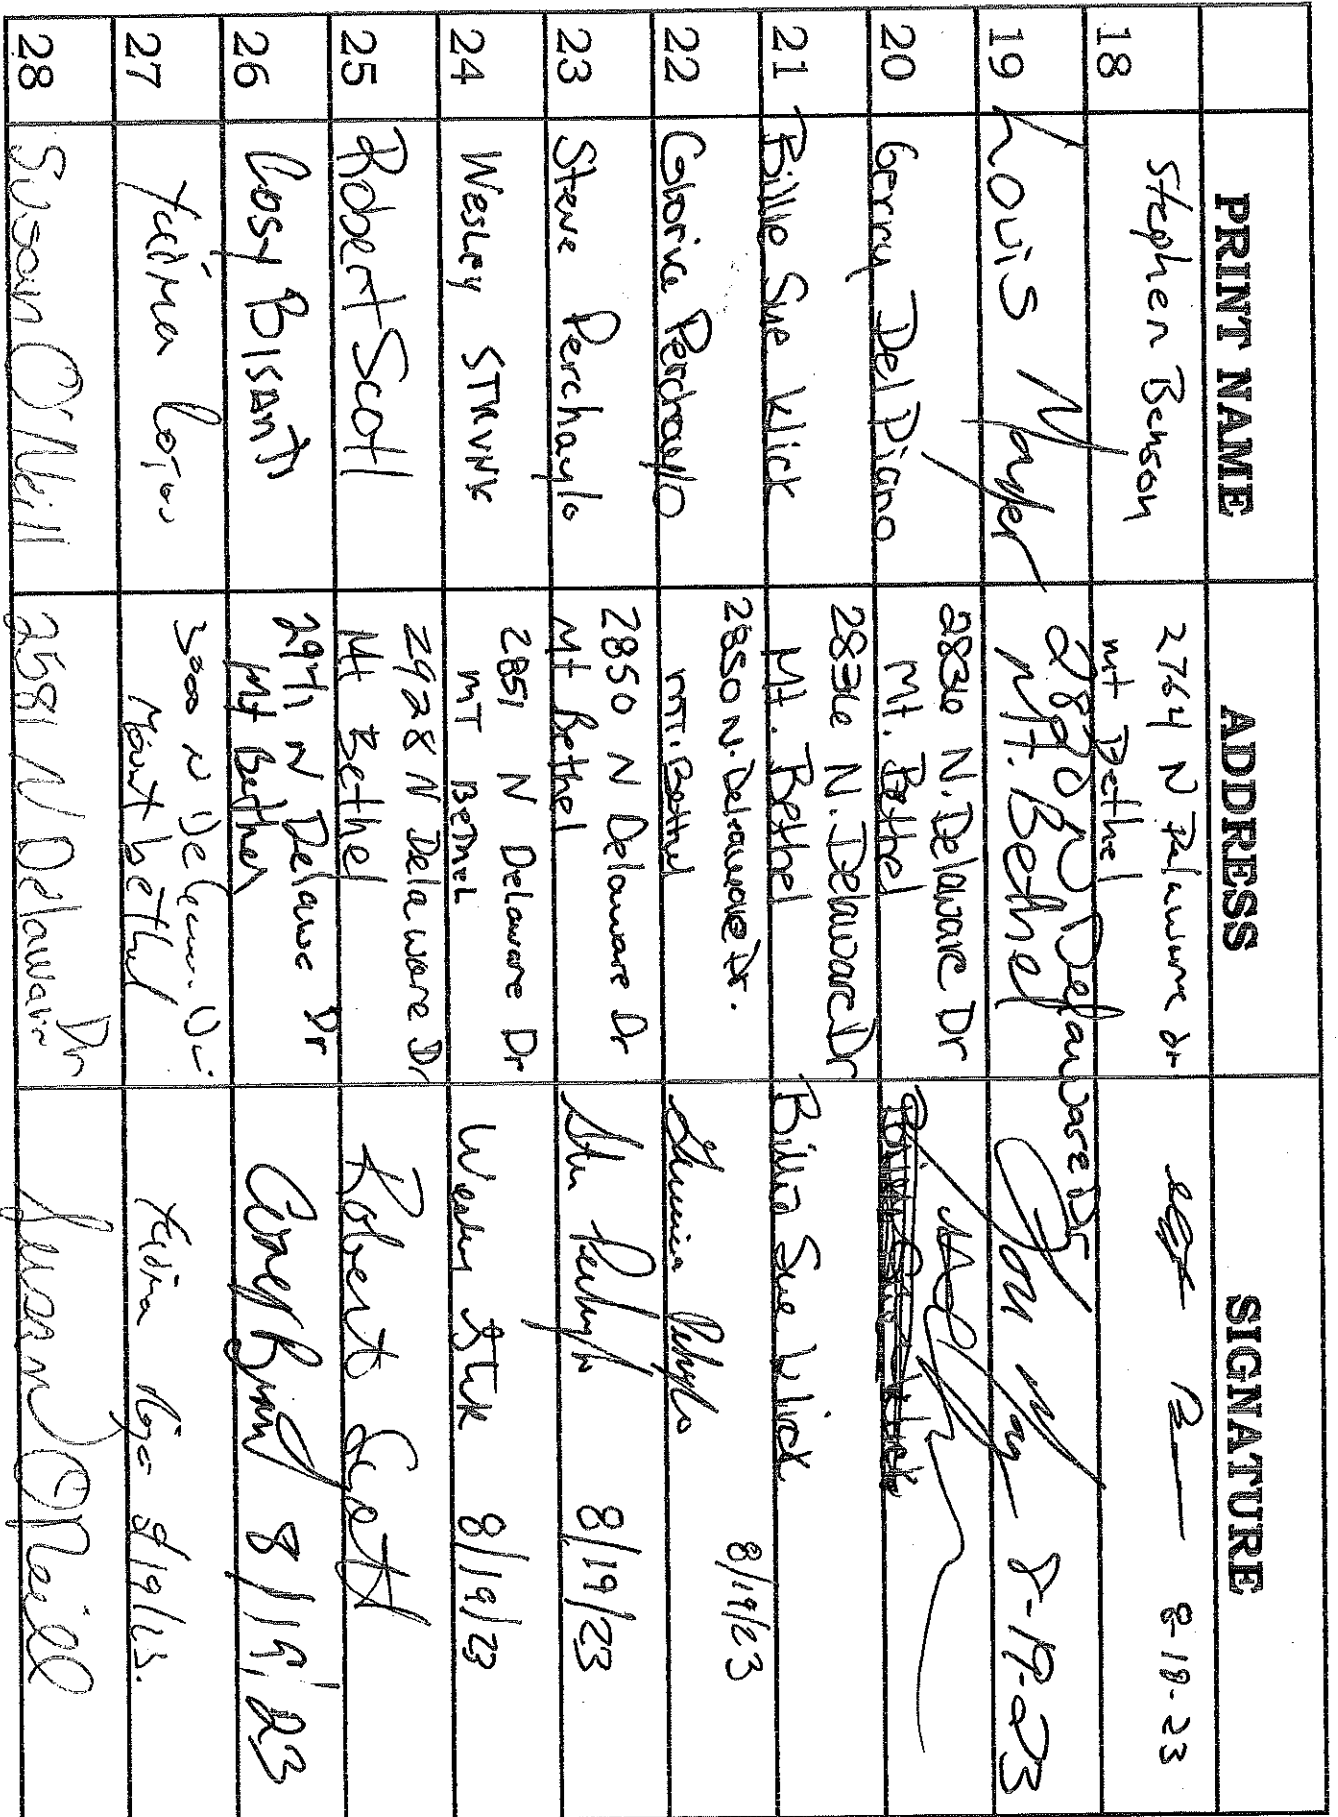 PRINT NAME ADDRESS SIGNATURE
18 Stephen Benson 2764 N Delaware dr
mt Bethel
8-19-23
19 Louis Mayer 2820 N Delaware Dr
Mt. Bethel
Lou May 8-19-23
20 Gerry Del Piano 2836 N. Delaware Dr
Mt. Bethel
21 Billie Sue Klick 2836 N. Delaware Dr
Mt. Bethel
Billie Sue Klick
22 Perchaylo 2850 N. Delaware Dr.
mt. Bethel
8/19/23
23 Steve Perchaylo 2850 N Delaware Dr
Mt Bethel
8/19/23
24 Wesley STRUNK 2851 N Delaware Dr
MT BETHEL
8/19/23
25 Robert Scott 2928 N Delaware Dr
Mt Bethel
Robert Scott
26 Bisanti N Delawe Dr
Mt Bethel
8/19/23
27 3000 N Dr
Mount bethel
8/19/23.
28 Susan O'Neill 2581 N Delaware Dr
Susan O'Neill